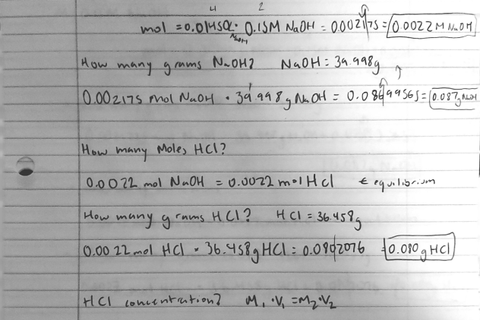 mol = 0.0145L · 0.15M NaOH = 0.002175 = 0.0022 M NaOH
How many grams NaOH? NaOH = 39.998g
0.002175 mol NaOH · 39.998 g NaOH = 0.08699565 = 0.087g NaOH
How many Moles HCl?
0.0022 mol NaOH = 0.0022 mol HCl ← equilibrium
How many grams HCl? HCl = 36.458g
0.0022 mol HCl · 36.458g HCl = 0.0802076 = 0.080g HCl
HCl concentration? M₁·V₁ = M₂·V₂